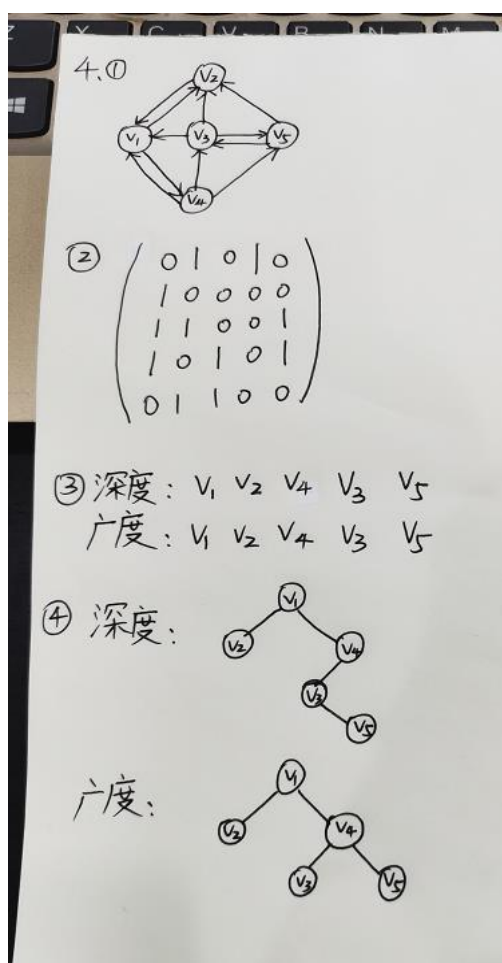 Z X C V B N M
4.①
V2
V1 V3 V5
V4
②
0 1 0 1 0
1 0 0 0 0
1 1 0 0 1
1 0 1 0 1
0 1 1 0 0
③ 深度: V1 V2 V4 V3 V5
广度: V1 V2 V4 V3 V5
④ 深度:
V1
V2 V4
V3
V5
广度:
V1
V2 V4
V3 V5